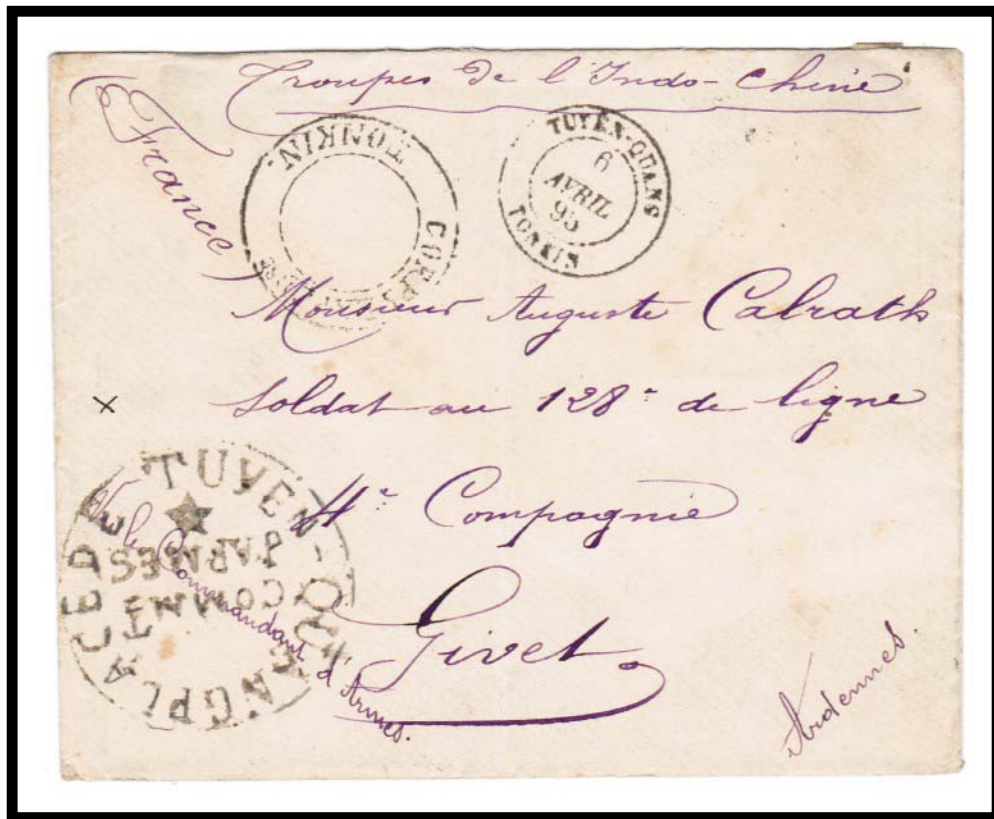 Troupes de l'Indo-Chine
(France)
TONKIN
CORPS
TUYEN-QUANG
6
AVRIL
95
TONKIN
Monsieur Auguste Calrath
Soldat au 128e de ligne
4e Compagnie
Givet
Ardennes.
PLACE DE TUYEN-QUANG
COMMANT
D'ARMES
le Commandant d'Armes.